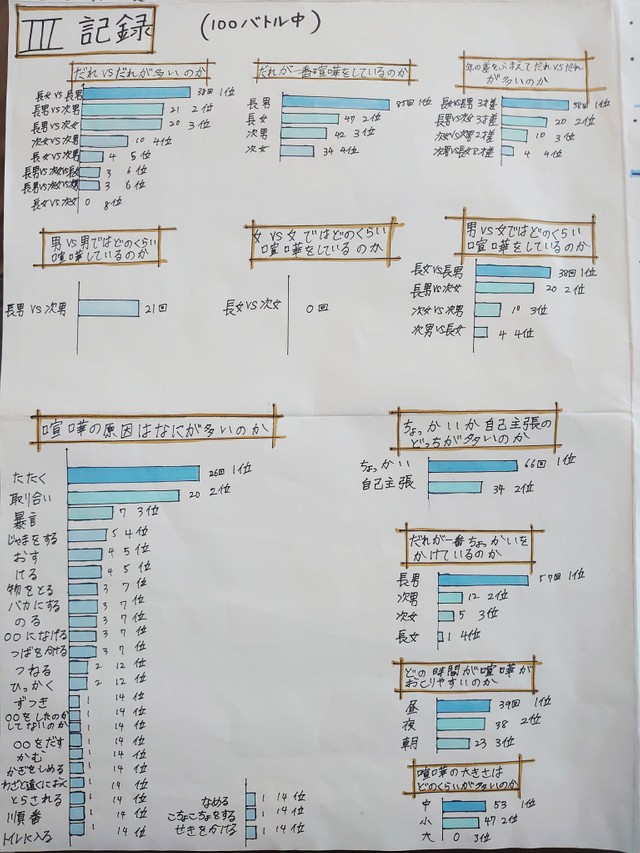 III 記録 (100バトル中)
だれVSだれが多いのか
長女VS長男 38回 1位
長男VS次男 21 2位
長男VS次女 20 3位
次女VS次男 10 4位
長女VS次男 4 5位
3 6位
3 6位
長女VS次女 0 8位
だれが一番喧嘩をしているのか
長男 85回 1位
長女 47 2位
次男 42 3位
次女 34 4位
年の差をふまえてだれVSだれ
が多いのか
長女VS長男 3才差 58回 1位
長男VS次女 3才差 20 2位
次女VS次男 2才差 10 3位
次男VS長女 8才差 4 4位
男VS男ではどのくらい
喧嘩をしているのか
長男VS次男 21回
女VS女ではどのくらい
喧嘩をしているのか
長女VS次女 0回
男VS女ではどのくらい
喧嘩をしているのか
長女VS長男 38回 1位
長男VS次女 20 2位
次女VS次男 10 3位
次男VS長女 4 4位
喧嘩の原因はなにが多いのか
たたく 26回 1位
取り合い 20 2位
暴言 7 3位
じゃまをする 5 4位
おす 4 5位
ける 4 5位
物をとる 3 7位
バカにする 3 7位
のる 3 7位
○○になげる 3 7位
つばを付ける 3 7位
つねる 2 12位
ひっかく 2 12位
ずつき 1 14位
○○をしたのか
してないのか 1 14位
○○をだす 1 14位
かむ 1 14位
かぎをしめる 1 14位
わざと遠くにおく 1 14位
とらされる 1 14位
順番 1 14位
トイレに入る 1 14位
なめる 1 14位
こちょこちょをする 1 14位
せきをかける 1 14位
ちょっかいか自己主張の
どっちが多いのか
ちょっかい 66回 1位
自己主張 34 2位
だれが一番ちょっかいを
かけているのか
長男 57回 1位
次男 12 2位
次女 5 3位
長女 1 4位
どの時間が喧嘩が
おこりやすいのか
昼 39回 1位
夜 38 2位
朝 23 3位
喧嘩の大きさは
どのくらいが多いのか
中 53 1位
小 47 2位
大 0 3位